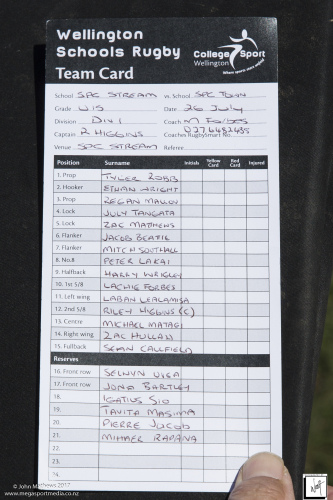 Wellington
Schools Rugby
Team Card
College Sport
Wellington
School SPC STREAM vs. School SPC TOWN
Grade U15 Date 26 July
Division DIV 1 Coach M FORBES
Captain R HIGGINS Coaches RugbySmart No.
Venue SPC STREAM Referee
Position Surname Initials Yellow Card Red Card Injured
1. Prop TYLER ROBB
2. Hooker ETHAN WRIGHT
3. Prop REGAN MALLON
4. Lock JULY TANGATA
5. Lock ZAC MATTHEWS
6. Flanker JACOB BEATIE
7. Flanker MITCH SOUTHALL
8. No.8 PETER LAKAI
9. Halfback HARRY WRIGLEY
10. 1st 5/8 LACHIE FORBES
11. Left wing LABAN LEALAMISA
12. 2nd 5/8 RILEY HIGGINS (C)
13. Centre MICHAEL MATAGI
14. Right wing ZAC HULLAN
15. Fullback SEAN CALLFIELD
Reserves
16. Front row SELWYN
17. Front row JONA BARTLEY
18. IGATIUS SIO
19. TAVITA MASIMA
20. PIERRE JACOB
21. MIHAER RAPANA
22.
23.
24.
© John Mathews 2017
www.megasportmedia.co.nz